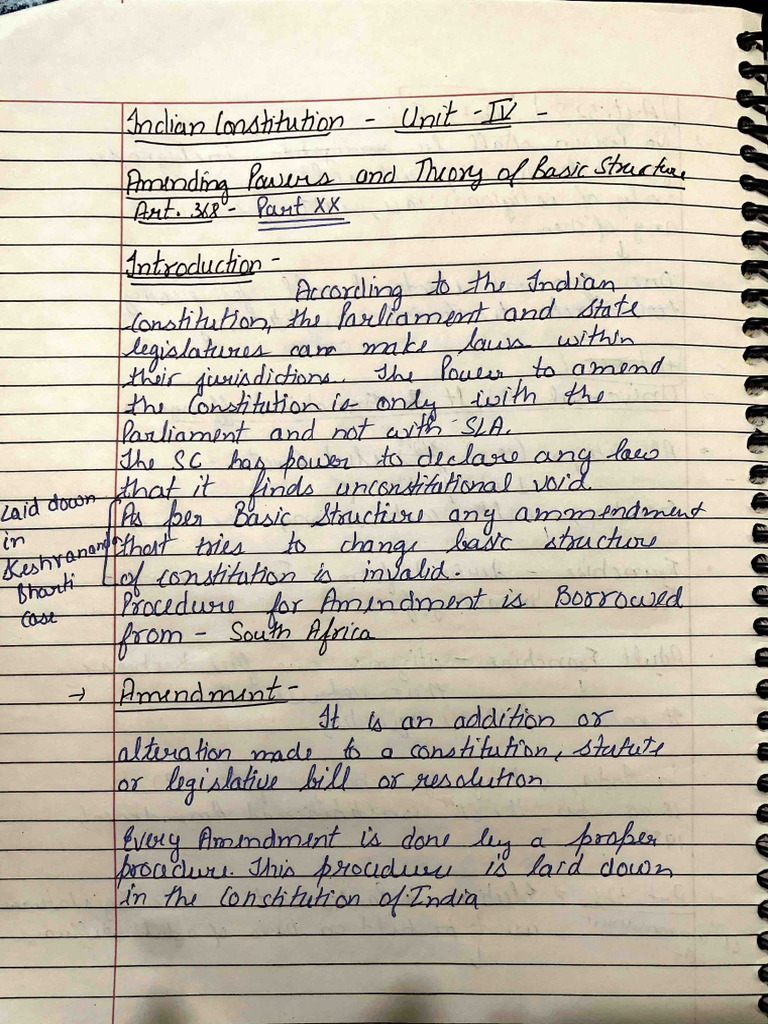 Indian Constitution - Unit - IV -
Amending Powers and Theory of Basic Structure
Art. 368 - Part XX
Introduction -
According to the Indian
Constitution, the Parliament and State
legislatures can make laws within
their jurisdictions. The Power to amend
the Constitution is only with the
Parliament and not with SLA.
The SC has power to declare any law
that it finds unconstitutional void.
Laid down
in
Keshvananda
Bharti
case
As per Basic Structure any ammendment
that tries to change basic structure
of constitution is invalid.
Procedure for Amendment is Borrowed
from - South Africa
→ Amendment -
It is an addition or
alteration made to a constitution, statute
or legislative bill or resolution
Every Amendment is done by a proper
procedure. This procedure is laid down
in the Constitution of India